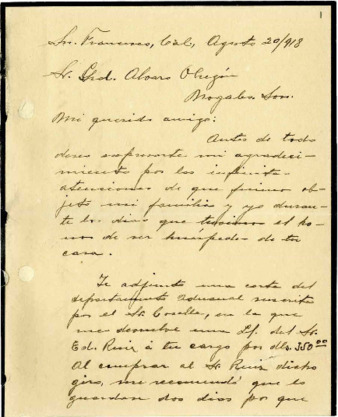 1
Sn. Francisco, Cal., Agosto 20/918
Sr. Gral. Alvaro Obregón
Nogales Son.
Mi querido amigo:
Antes de todo
deseo expresarte mi agradeci-
miento por las infinitas
atenciones de que fuimos ob-
jeto mi familia y yo duran-
te los dias que tuvimos el ho-
nor de ser huéspedes de tu
casa.
Te adjunto una carta del
departamento Aduanal suscrita
por el Sr. en la que
me devuelve una del Sr.
Ed. Ruiz á tu cargo por dlls. 350.00
Al comprar al Sr. Ruiz dicho
giro, me recomendó que lo
guardara dos dias por que